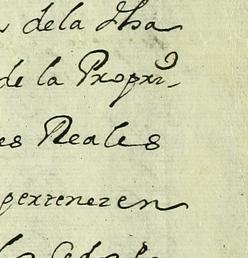 dela Ysa
de la Propri
es Reales
pertenezen